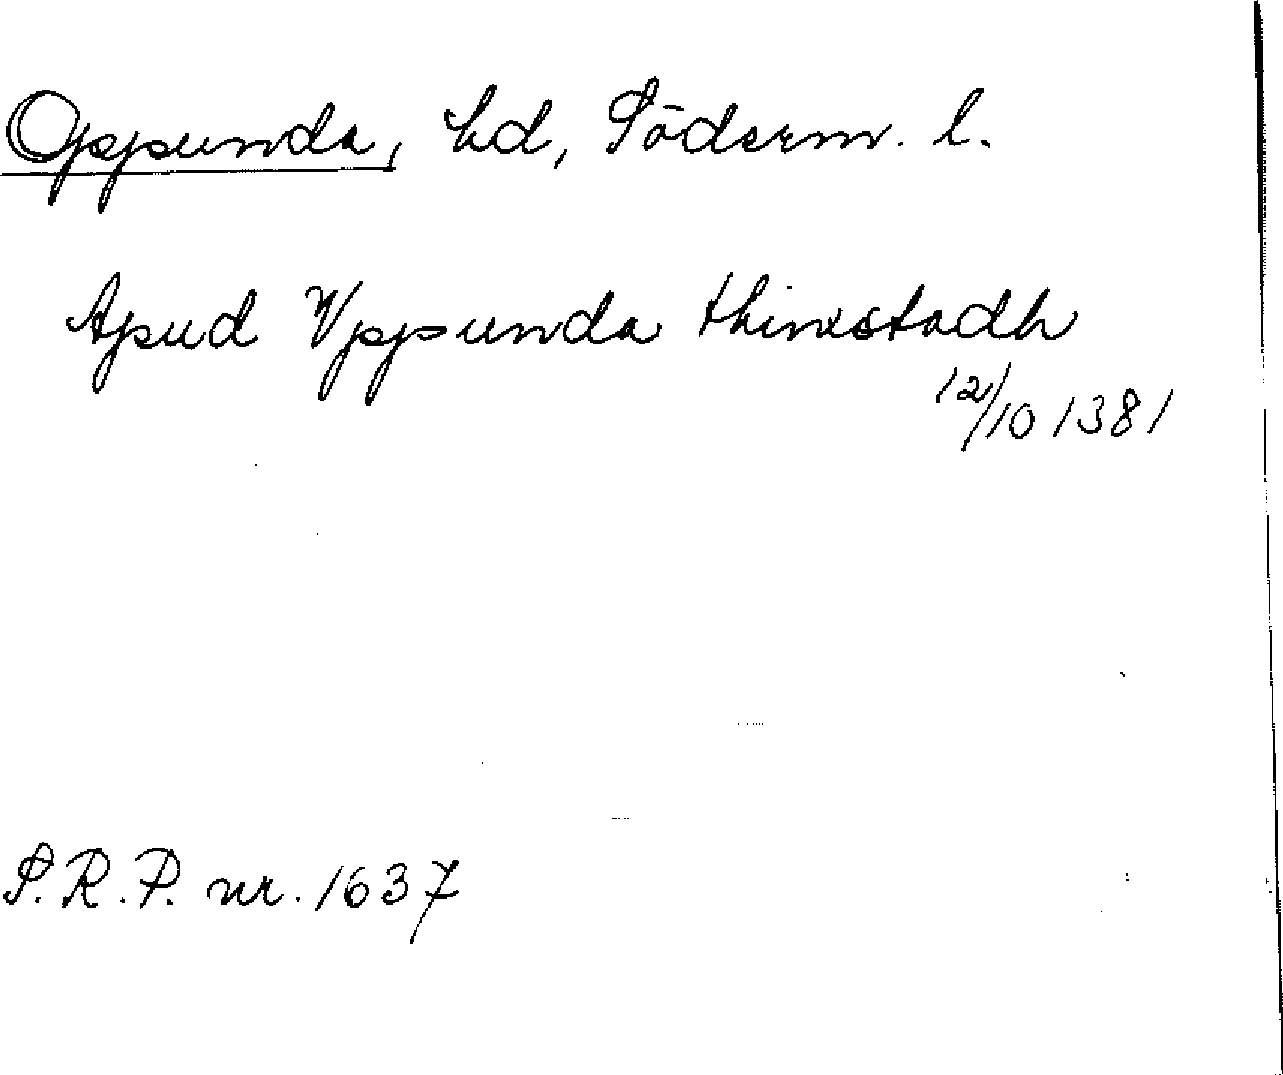 Oppunda, hd, Söderm. l.
Apud Vppunda thinxstadh
12/10 1381
S.R.P. nr. 1637